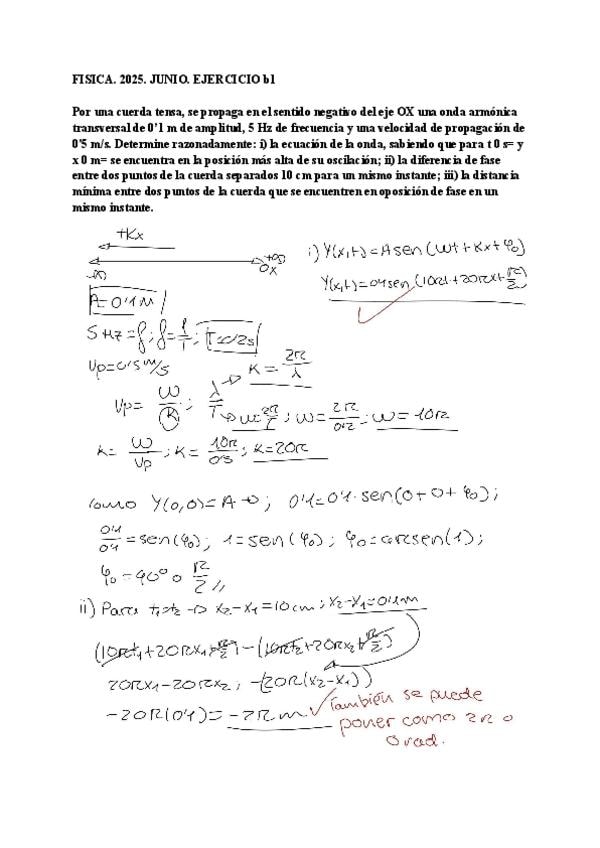 FISICA. 2025. JUNIO. EJERCICIO b1
Por una cuerda tensa, se propaga en el sentido negativo del eje OX una onda armónica
transversal de 0'1 m de amplitud, 5 Hz de frecuencia y una velocidad de propagación de
0'5 m/s. Determine razonadamente: i) la ecuación de la onda, sabiendo que para t 0 s= y
x 0 m= se encuentra en la posición más alta de su oscilación; ii) la diferencia de fase
entre dos puntos de la cuerda separados 10 cm para un mismo instante; iii) la distancia
mínima entre dos puntos de la cuerda que se encuentren en oposición de fase en un
mismo instante.
+Kx
OX
i) Y(x,t)=A sen(ωt+Kx+φ0)
Y(x,t)=0'1 sen(10πt+20πx+π/2)
A=0'1 M
5 Hz=f; f=1/T; T=0'2s
Vp=0'5 m/s
K=2π/λ
Vp= ω/K; λ/T → ω=2π/T; ω=2π/0'2; ω=10π
K= ω/Vp; K= 10π/0'5; K=20π
Como Y(0,0)=A → 0'1=0'1·sen(0+0+φ0);
0'1/0'1=sen(φ0); 1=sen(φ0); φ0=arcsen(1);
φ0=90º o π/2 //
ii) Para t1=t2 → x2-x1=10cm; x2-x1=0'1m
(10πt1+20πx1+π/2)-(10πt2+20πx2+π/2)
20πx1-20πx2; -(20π(x2-x1))
-20π(0'1)=-2π m
También se puede
poner como 2π o
0 rad.